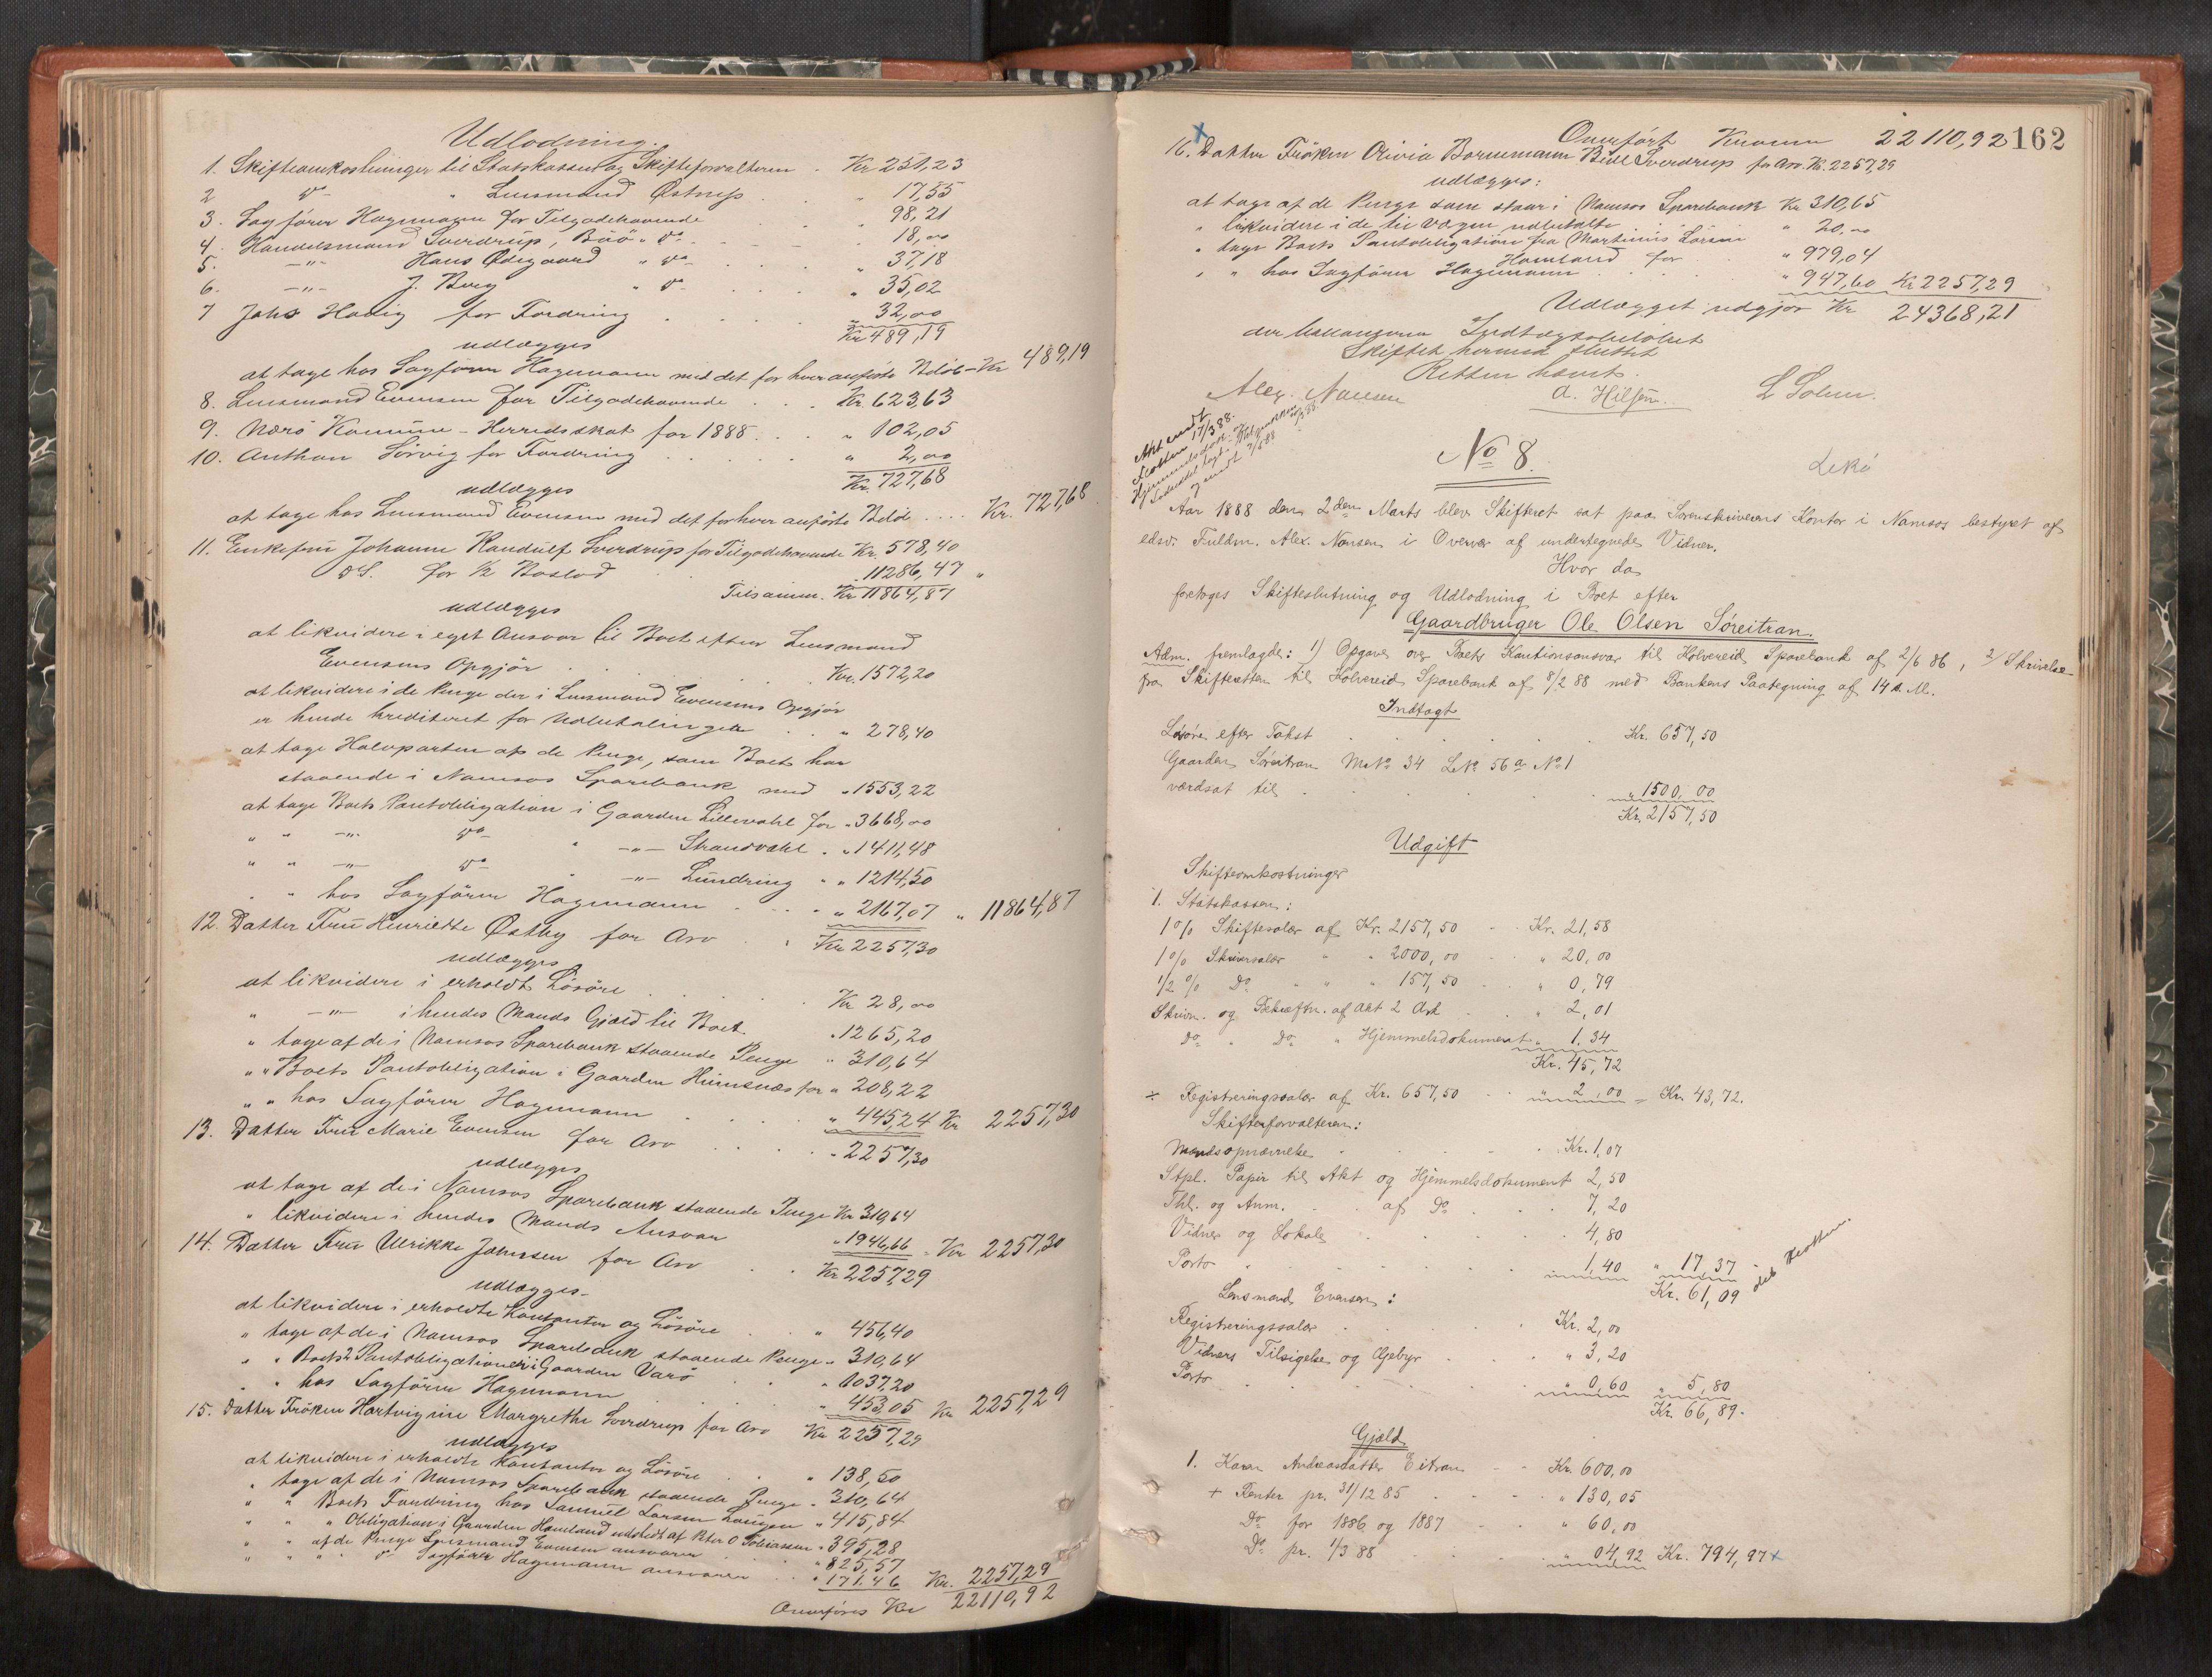 Udlodning.
1. Skifteomkostninger til Statskassen og Skifteforvalteren . Kr 251,23
2 do " Lensmand Østnes . . " 17,55
3. Sagfører Hagemann for Tilgodehavende " 98,21
4. Handelsmand Sverdrup, Böö " do . " 18,00
5. —"— Hans Ødegaard " do . . . " 37,18
6. —"— J. Berg " do . . . " 35,02
7 Johs Havig for Fordring . . . " 32,00
Kr 489,19
udlægges
at tage hos Sagfører Hagemann med det for hver anførte Beløb – Kr 489,19
8. Lensmand Evensen for Tilgodehavende . . . Kr. 623,63
9. Nærö Kommune – Herredsskat for 1888 . . " 102,05
10. Anthon Sörvig for Fordring . . . . " 2,00
Kr. 727,68
udlægges
at tage hos Lensmand Evensen med det for hver anførte Beløb .... Kr. 727,68
11. Enkefru Johanne Randulf Sverdrup for Tilgodehavende Kr. 578,40
do. for 1/2 Boslod . . . 11286,47 "
Tilsamm. Kr 11864,87
udlægges
at likvidere i eget Ansvar til Boet efter Lensmand
Evensens Opgjör . . . . . Kr. 1572,20
at likvidere i de Penge der i Lensmand Evensens Opgjör
er hende krediteret for Udbetalinger . . " 278,40
at tage Halvparten af de Penge, som Boet har
staaende i Namsos Sparebank med " 1553,22
at tage Boets Pantobligation i Gaarden Lillevahl for " 3668,00
" " —"— do " —"— Strandvahl . " 1411,48
" " —"— do " —"— Lundring " " 1214,50
" " hos Sagfører Hagemann . . . . " 2167,07 " 11864,87
12. Datter Fru Henriette Østby for Arv . . Kr 2257,30
udlægges
at likvidere i erholdt Lösöre . . . . Kr 28,00
" —"— i hendes Mands Gjæld til Boet . " 1265,20
" tage af de i Namsos Sparebank staaende Penge " 310,64
" " Boets Pantobligation i Gaarden Humsnæs for " 208,22
" " hos Sagfører Hagemann . . . " 445,24 Kr 2257,30
13. Datter Fru Marie Evensen for Arv . . . " 2257,30
udlægges
at tage af de i Namsos Sparebank staaende Penge Kr 310,64
" likvidere i hendes Mands Ansvar " 1946,66 " Kr 2257,30
14. Datter Fru Ulrikke Johnsen for Arv . . Kr 2257,29
udlægges –
at likvidere i erholdte Kontanter og Lösöre . . " 456,40
" tage af de i Namsos Sparebank staaende Penge " 310,64
" " Boets 2 Pantobligationer i Gaarden Varö . . " 1037,20
" " hos Sagfører Hagemann . . . " 453,05 Kr 2257,29
15. Datter Fröken Hartvigine Margrethe Sverdrup for Arv Kr 2257,29
udlægges
at likvidere i erholdte Kontanter og Lösöre . . " 138,50
" tage af de i Namsos Sparebank staaende Penge " 310,64
" " Boets Fordring hos Samuel Larsen Laugen " 415,84
" " " Obligation i Gaarden Homland udstedt af Peter O Tobiassen " 395,28
" " af de Penge Lensmand Evensen ansvarer . . " 825,57
" " " " do Sagfører Hagemann ansvarer . . " 171,46 Kr. 2257,29
Overføres Kr 22110,92
Overført Kroner 22110,92 162
16. Datter Fröken Olivia Bornemann Bull Sverdrup for Arv. Kr. 2257,29
udlægges:
at tage af de Penge som staar i Namsos Sparebank Kr 310,65
" likvidere i de til Vogn udbetalte . . " 20,00
" tage Boets Pantobligation fra Martinus Larsen
Homland for . . " 979,04
" " hos Sagfører Hagemann . . . " 947,60 Kr 2257,29
Udlægget udgjør Kr 24368,21
der balancerer Indtægtsbeløbet
Skiftet hermed sluttet
Retten hævet.
Alex. Nansen A. Hilsen L Solum.
Akt sendt
17/3 88.
№ 8.
Lekö
Aar 1888 den 2den Marts blev Skifteret sat paa Sorenskriverens Kontor i Namsos bestyret af
edsv. Fuldm. Alex. Nansen i Overvær af undertegnede Vidner.
Hvor da
foretoges Skifteslutning og Udlodning i Boet efter
Gaardbruger Ole Olsen Søreitran.
Adm. fremlagde: 1) Opgave over Boets Kautionsansvar til Kolvereid Sparebank af 2/6 86, 2/ Skrivelse
fra Skifteretten til Kolvereid Sparebank af 8/2 88 med Bankens Paategning af 14 d. M.
Indtægt
Løsøre efter Takst . . . . . . Kr. 657,50
Gaarden Søreitran M.No 34 L.No 56a No 1
værdsat til . . . . . . " 1500,00
Kr. 2157,50
Udgift
Skifteomkostninger
1. Statskassen:
1% Skiftesalær af Kr. 2157,50 . . Kr. 21,58
1% Skriversalær " " 2000,00 . . " 20,00
1/2 % Do " " 157,50 . . " 0,79
Skrivn. og Bekræftn. af Akt 2 Ark . . " 2,01
Do " Do " Hjemmelsdokument " 1.34
Kr. 45,72
÷ Registreringssalær af Kr. 657,50 . . " 2,00 = Kr. 43,72.
Skifteforvalteren:
Mandsopnævnelse . . . . Kr. 1,07
Stpl. Papir til Akt og Hjemmelsdokument 2,50
Thl. og Anm. . . af Do . . . 7,20
Vidner og Lokale . . . . 4,80
Porto . . . . . . 1,40 " 17,37
Kr. 61,09
Lensmand Evensen:
Registreringssalær . . . . . Kr. 2,00
Vidners Tilsigelse og Gebyr . . . " 3,20
Porto . . . . . . " 0,60 " 5,80
Kr. 66,89.
Gjæld
1. Karen Andreasdatter Eitran . . Kr. 600,00
+ Renter pr. 31/12 85 . . . . " 130,05
Do for 1886 og 1887 . . . " 60,00
Do pr. 1/3 88 . . . . " 04,92 Kr. 794,97